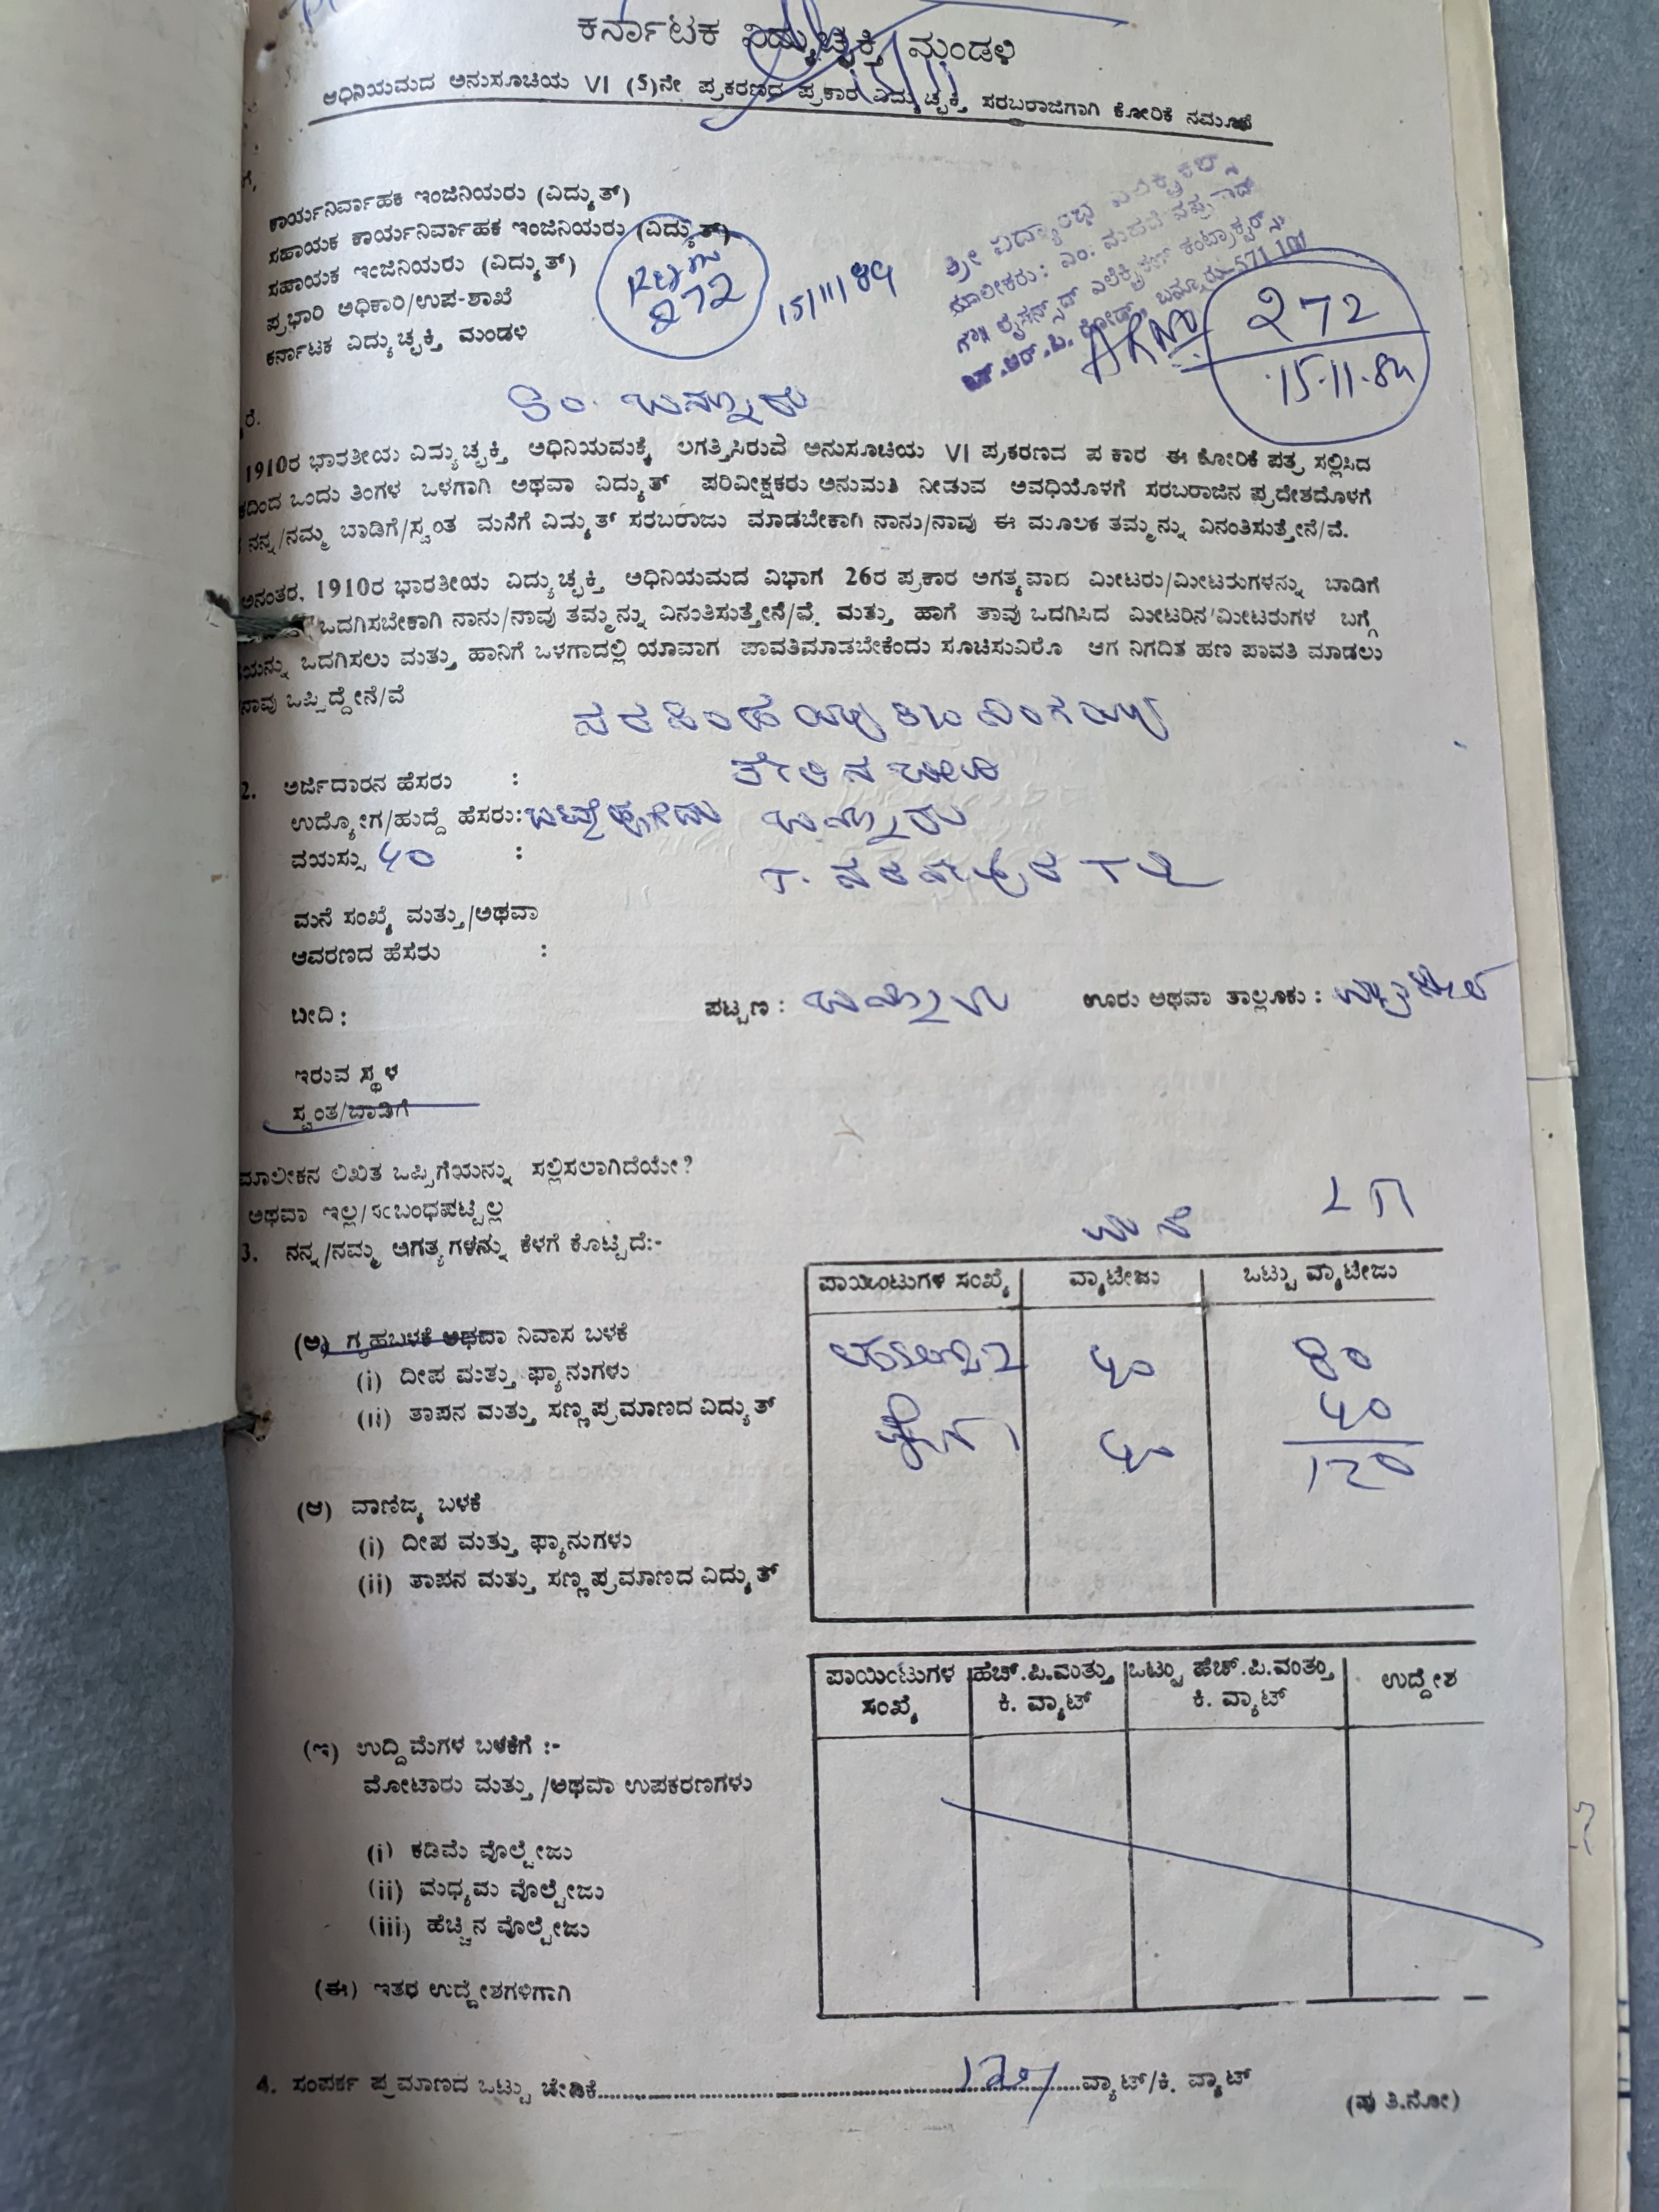 ಕರ್ನಾಟಕ ವಿದ್ಯುಚ್ಛಕ್ತಿ ಮಂಡಳಿ
ಅಧಿನಿಯಮದ ಅನುಸೂಚಿಯ VI (5)ನೇ ಪ್ರಕರಣದ ಪ್ರಕಾರ ವಿದ್ಯುಚ್ಛಕ್ತಿ ಸರಬರಾಜಿಗಾಗಿ ಕೋರಿಕೆ ನಮೂನೆ
ಕಾರ್ಯನಿರ್ವಾಹಕ ಇಂಜಿನಿಯರು (ವಿದ್ಯುತ್)
ಸಹಾಯಕ ಕಾರ್ಯನಿರ್ವಾಹಕ ಇಂಜಿನಿಯರು (ವಿದ್ಯುತ್)
ಸಹಾಯಕ ಇಂಜಿನಿಯರು (ವಿದ್ಯುತ್)
ಪ್ರಭಾರಿ ಅಧಿಕಾರಿ/ಉಪ-ಶಾಖೆ
ಕರ್ನಾಟಕ ವಿದ್ಯುಚ್ಛಕ್ತಿ ಮಂಡಳಿ
272
15/11/84
ಮಾಲೀಕರು: ಎಂ.
ಎಲೆಕ್ಟ್ರಿಕಲ್ ಕಂಟ್ರಾಕ್ಟರ್ಸ್
ರೋಡ್, ಬನ್ನೂರು-571 101
ARNo 272
15.11.84
ಬನ್ನೂರು
1910ರ ಭಾರತೀಯ ವಿದ್ಯುಚ್ಛಕ್ತಿ ಅಧಿನಿಯಮಕ್ಕೆ ಲಗತ್ತಿಸಿರುವ ಅನುಸೂಚಿಯ VI ಪ್ರಕರಣದ ಪ್ರಕಾರ ಈ ಕೋರಿಕೆ ಪತ್ರ ಸಲ್ಲಿಸಿದ
ದಿಂದ ಒಂದು ತಿಂಗಳ ಒಳಗಾಗಿ ಅಥವಾ ವಿದ್ಯುತ್ ಪರಿವೀಕ್ಷಕರು ಅನುಮತಿ ನೀಡುವ ಅವಧಿಯೊಳಗೆ ಸರಬರಾಜಿನ ಪ್ರದೇಶದೊಳಗೆ
ನನ್ನ/ನಮ್ಮ ಬಾಡಿಗೆ/ಸ್ವಂತ ಮನೆಗೆ ವಿದ್ಯುತ್ ಸರಬರಾಜು ಮಾಡಬೇಕಾಗಿ ನಾನು/ನಾವು ಈ ಮೂಲಕ ತಮ್ಮನ್ನು ವಿನಂತಿಸುತ್ತೇನೆ/ವೆ.
ಅನಂತರ, 1910ರ ಭಾರತೀಯ ವಿದ್ಯುಚ್ಛಕ್ತಿ ಅಧಿನಿಯಮದ ವಿಭಾಗ 26ರ ಪ್ರಕಾರ ಅಗತ್ಯವಾದ ಮೀಟರು/ಮೀಟರುಗಳನ್ನು ಬಾಡಿಗೆ
ಒದಗಿಸಬೇಕಾಗಿ ನಾನು/ನಾವು ತಮ್ಮನ್ನು ವಿನಂತಿಸುತ್ತೇನೆ/ವೆ. ಮತ್ತು ಹಾಗೆ ತಾವು ಒದಗಿಸಿದ ಮೀಟರಿನ/ಮೀಟರುಗಳ ಬಗ್ಗೆ
ಯನ್ನು ಒದಗಿಸಲು ಮತ್ತು ಹಾನಿಗೆ ಒಳಗಾದಲ್ಲಿ ಯಾವಾಗ ಪಾವತಿಮಾಡಬೇಕೆಂದು ಸೂಚಿಸುವಿರೊ ಆಗ ನಿಗದಿತ ಹಣ ಪಾವತಿ ಮಾಡಲು
ನಾವು ಒಪ್ಪಿದ್ದೇನೆ/ವೆ
ನರಸಿಂಹಯ್ಯ ಬಿನ್ ನಿಂಗಯ್ಯ
2. ಅರ್ಜಿದಾರನ ಹೆಸರು :
ಉದ್ಯೋಗ/ಹುದ್ದೆ ಹೆಸರು: ಬನ್ನೂರು
ವಯಸ್ಸು ೪೦ : T. ನರಸೀಪುರ TQ
ಮನೆ ಸಂಖ್ಯೆ ಮತ್ತು/ಅಥವಾ
ಆವರಣದ ಹೆಸರು :
ಬೀದಿ: ಪಟ್ಟಣ: ಬನ್ನೂರು ಊರು ಅಥವಾ ತಾಲ್ಲೂಕು: ಮೈಸೂರು
ಇರುವ ಸ್ಥಳ
ಸ್ವಂತ/ಬಾಡಿಗೆ
ಮಾಲೀಕನ ಲಿಖಿತ ಒಪ್ಪಿಗೆಯನ್ನು ಸಲ್ಲಿಸಲಾಗಿದೆಯೇ?
ಅಥವಾ ಇಲ್ಲ/ಸಂಬಂಧಪಟ್ಟಿಲ್ಲ
ಮನೆ
3. ನನ್ನ/ನಮ್ಮ ಅಗತ್ಯಗಳನ್ನು ಕೆಳಗೆ ಕೊಟ್ಟಿದೆ:-
ಪಾಯಿಂಟುಗಳ ಸಂಖ್ಯೆ ವ್ಯಾಟೇಜು ಒಟ್ಟು ವ್ಯಾಟೇಜು
(ಅ) ಗೃಹಬಳಕೆ ಅಥವಾ ನಿವಾಸ ಬಳಕೆ
(i) ದೀಪ ಮತ್ತು ಫ್ಯಾನುಗಳು ೪೦ 80
(ii) ತಾಪನ ಮತ್ತು ಸಣ್ಣ ಪ್ರಮಾಣದ ವಿದ್ಯುತ್ ೪೦ ೪೦
120
(ಆ) ವಾಣಿಜ್ಯ ಬಳಕೆ
(i) ದೀಪ ಮತ್ತು ಫ್ಯಾನುಗಳು
(ii) ತಾಪನ ಮತ್ತು ಸಣ್ಣ ಪ್ರಮಾಣದ ವಿದ್ಯುತ್
ಪಾಯಿಂಟುಗಳ ಹೆಚ್.ಪಿ.ಮತ್ತು ಒಟ್ಟು ಹೆಚ್.ಪಿ.ಮತ್ತು ಉದ್ದೇಶ
ಸಂಖ್ಯೆ ಕಿ. ವ್ಯಾಟ್ ಕಿ. ವ್ಯಾಟ್
(ಇ) ಉದ್ದಿಮೆಗಳ ಬಳಕೆಗೆ :-
ಮೋಟಾರು ಮತ್ತು /ಅಥವಾ ಉಪಕರಣಗಳು
(i) ಕಡಿಮೆ ವೋಲ್ಟೇಜು
(ii) ಮಧ್ಯಮ ವೋಲ್ಟೇಜು
(iii) ಹೆಚ್ಚಿನ ವೋಲ್ಟೇಜು
(ಈ) ಇತರ ಉದ್ದೇಶಗಳಿಗಾಗಿ
4. ಸಂಪರ್ಕ ಪ್ರಮಾಣದ ಒಟ್ಟು ಬೇಡಿಕೆ 120 ವ್ಯಾಟ್/ಕಿ. ವ್ಯಾಟ್
(ಪು.ತಿ.ನೋ)